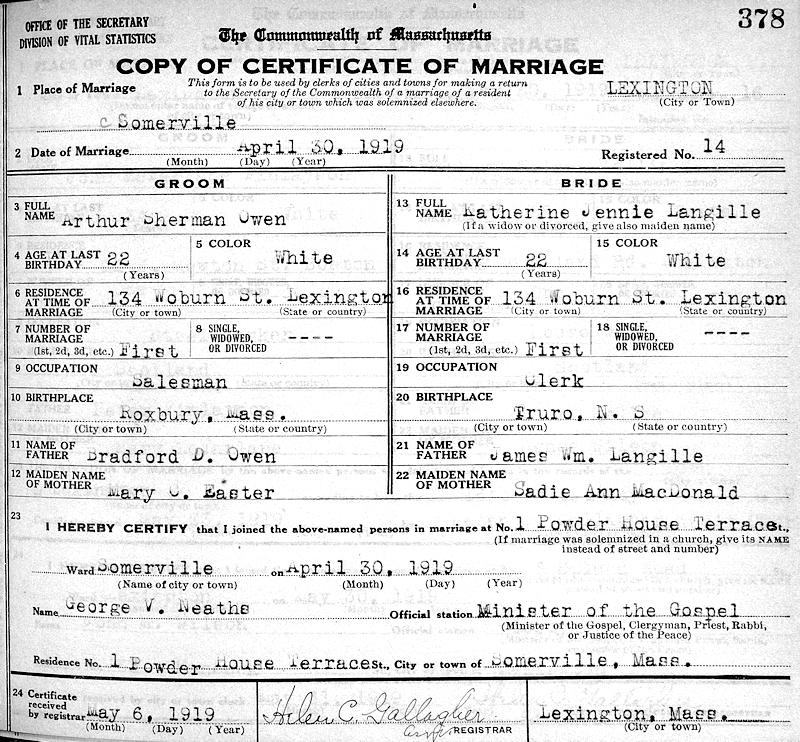 378
OFFICE OF THE SECRETARY
DIVISION OF VITAL STATISTICS
The Commonwealth of Massachusetts
COPY OF CERTIFICATE OF MARRIAGE
1 Place of Marriage
This form is to be used by clerks of cities and towns for making a return
to the Secretary of the Commonwealth of a marriage of a resident
of his city or town which was solemnized elsewhere.
LEXINGTON
(City or Town)
Somerville
2 Date of Marriage April 30, 1919
(Month) (Day) (Year)
Registered No. 14
GROOM
3 FULL NAME Arthur Sherman Owen
4 AGE AT LAST BIRTHDAY 22
(Years)
5 COLOR
White
6 RESIDENCE AT TIME OF MARRIAGE 134 Woburn St. Lexington
(City or town) (State or country)
7 NUMBER OF MARRIAGE
(1st, 2d, 3d, etc.) First
8 SINGLE, WIDOWED, OR DIVORCED ----
9 OCCUPATION
Salesman
10 BIRTHPLACE
Roxbury, Mass.
(City or town) (State or country)
11 NAME OF FATHER Bradford D. Owen
12 MAIDEN NAME OF MOTHER
Mary C. Easter
BRIDE
13 FULL NAME Katherine Jennie Langille
(If a widow or divorced, give also maiden name)
14 AGE AT LAST BIRTHDAY 22
(Years)
15 COLOR
White
16 RESIDENCE AT TIME OF MARRIAGE 134 Woburn St. Lexington
(City or town) (State or country)
17 NUMBER OF MARRIAGE
(1st, 2d, 3d, etc.) First
18 SINGLE, WIDOWED, OR DIVORCED ----
19 OCCUPATION
Clerk
20 BIRTHPLACE
Truro, N. S
(City or town) (State or country)
21 NAME OF FATHER James Wm. Langille
22 MAIDEN NAME OF MOTHER
Sadie Ann MacDonald
23
I HEREBY CERTIFY that I joined the above-named persons in marriage at No. 1 Powder House Terrace St.,
(If marriage was solemnized in a church, give its NAME
instead of street and number)
Ward Somerville on April 30, 1919
(Name of city or town) (Month) (Day) (Year)
Name George V. Neaths Official station Minister of the Gospel
(Minister of the Gospel, Clergyman, Priest, Rabbi,
or Justice of the Peace)
Residence No. 1 Powder House Terrace St., City or town of Somerville, Mass.
24 Certificate received by registrar May 6, 1919
(Month) (Day) (Year)
Helen C. Gallagher
REGISTRAR
Lexington, Mass.
(City or town)